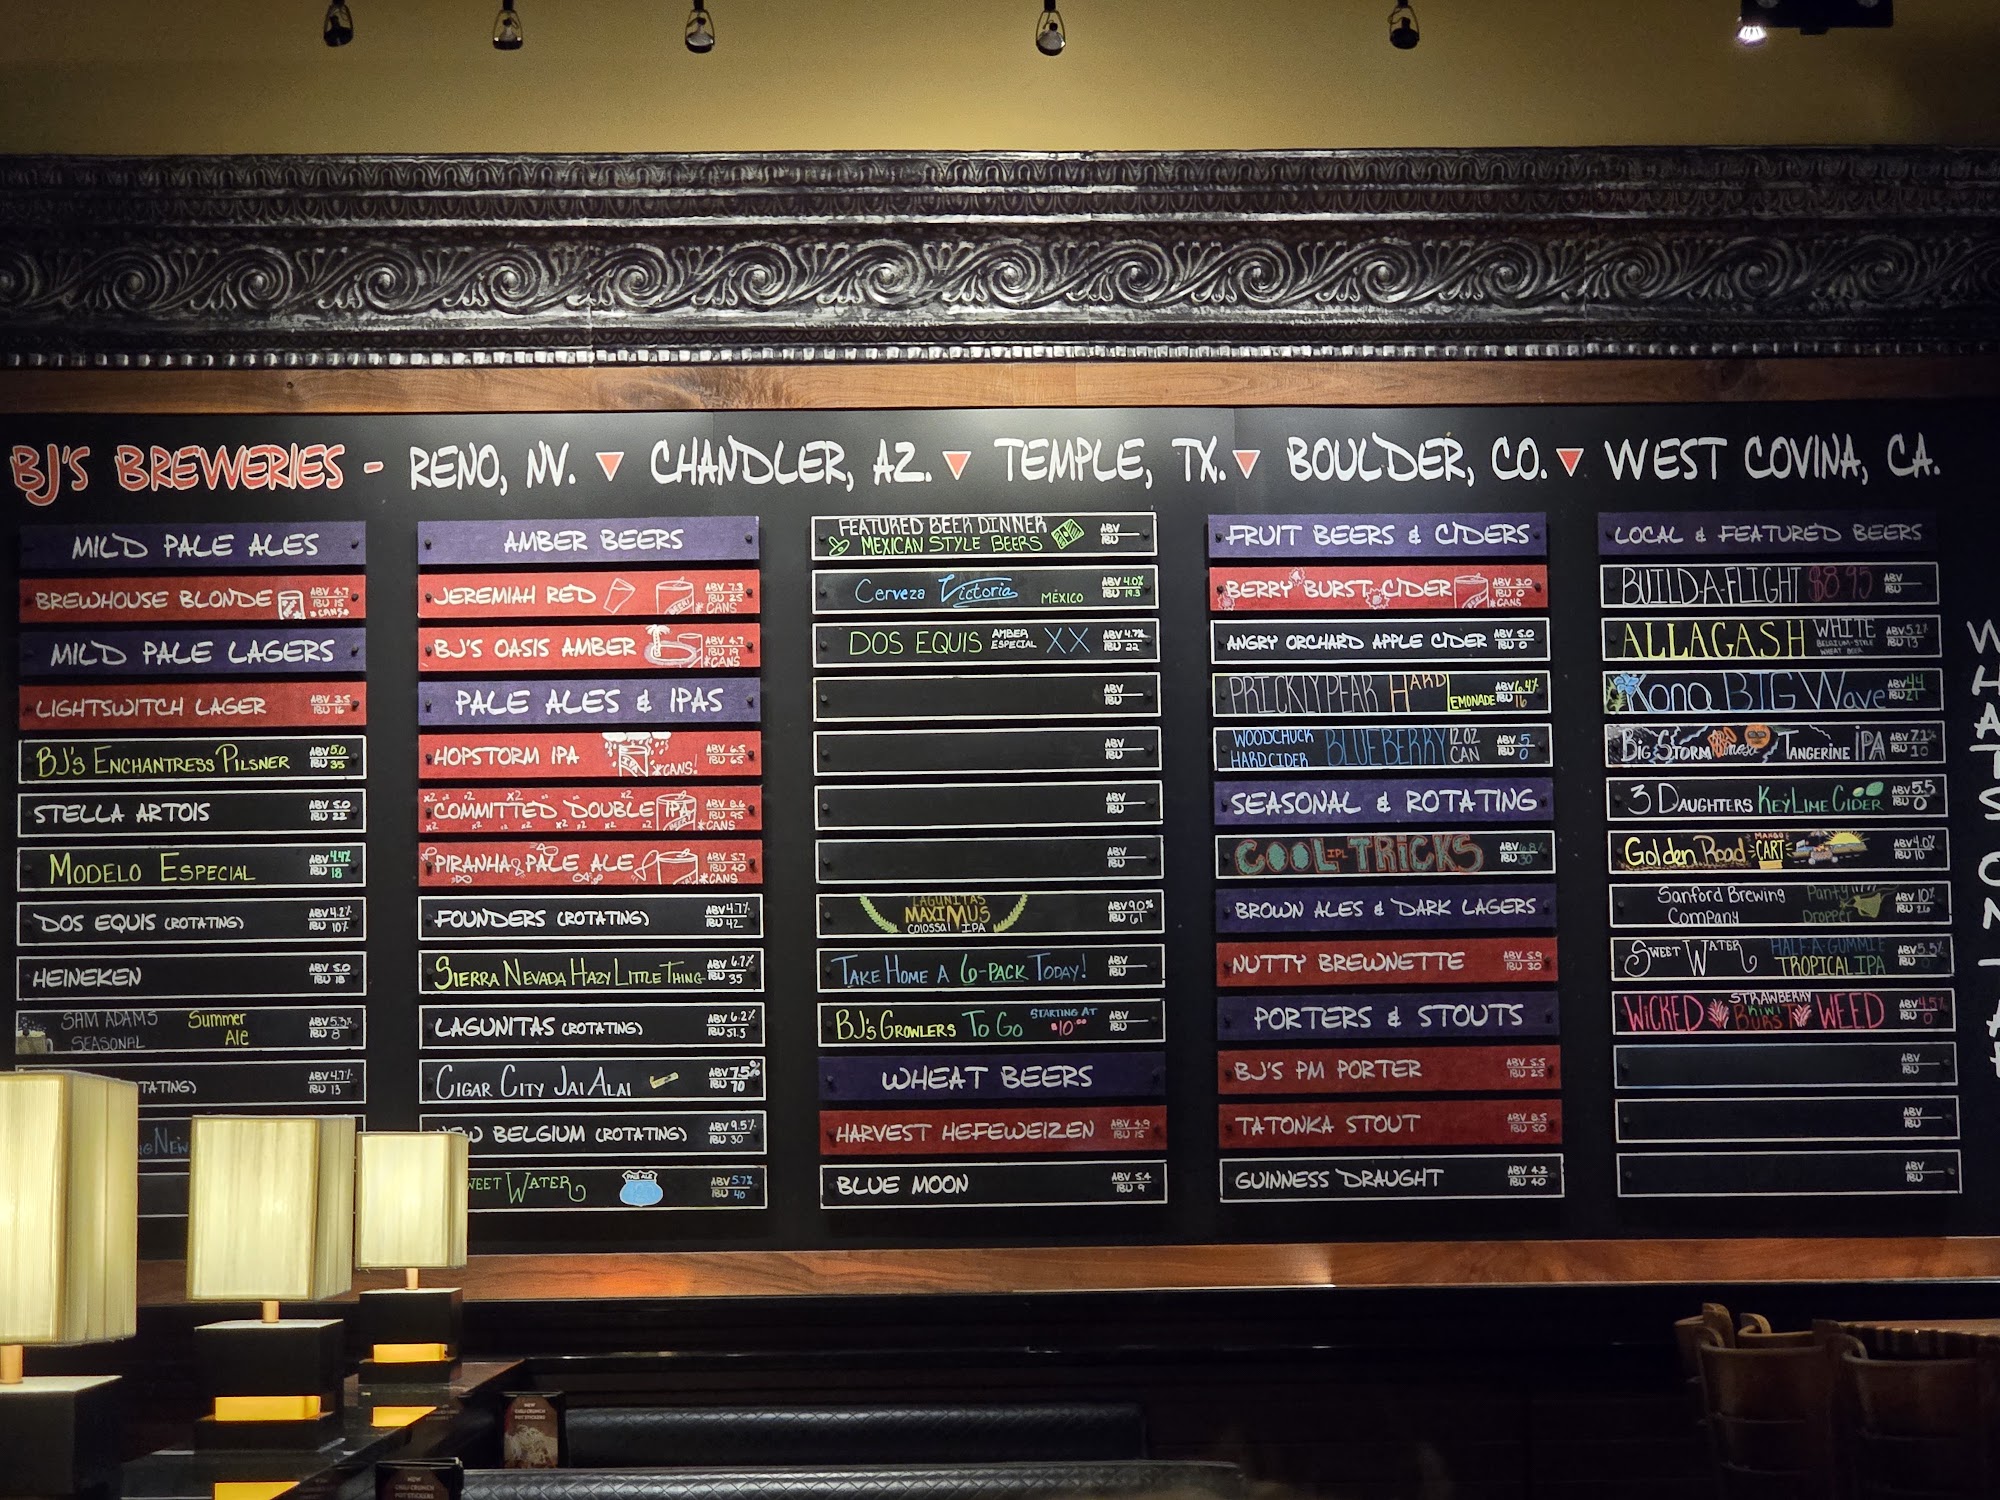 BJ'S BREWERIES - RENO, NV. ▼ CHANDLER, AZ. ▼ TEMPLE, TX. ▼ BOULDER, CO. ▼ WEST COVINA, CA.
MILD PALE ALES
BREWHOUSE BLONDE ABV 4.9 IBU 15 *CANS*
MILD PALE LAGERS
LIGHTSWITCH LAGER ABV 3.5 IBU 16
BJ's ENCHANTRESS PILSNER ABV 5.0 IBU 35
STELLA ARTOIS ABV 5.0 IBU 22
MODELO ESPECIAL ABV 4.4% IBU 18
DOS EQUIS (ROTATING) ABV 4.2% IBU 10%
HEINEKEN ABV 5.0 IBU 18
SAM ADAMS SEASONAL Summer Ale ABV 5.3% IBU 8
TATING) ABV 4.7% IBU 13
NG NEW
AMBER BEERS
JEREMIAH RED ABV 7.3 IBU 25 *CANS
BJ'S OASIS AMBER ABV 4.7 IBU 19 *CANS
PALE ALES & IPAS
HOPSTORM IPA IPA ABV 6.5 IBU 65 *CANS!
COMMITTED DOUBLE IPA ABV 8.6 IBU 95 *CANS
PIRANHA PALE ALE ABV 5.7 IBU 40 *CANS
FOUNDERS (ROTATING) ABV 4.7% IBU 42
SIERRA NEVADA HAZY LITTLE THING ABV 6.7% IBU 35
LAGUNITAS (ROTATING) ABV 6.2% IBU 51.5
CIGAR CITY JAI ALAI ABV 7.5% IBU 70
NEW BELGIUM (ROTATING) ABV 9.5% IBU 30
WEET WATER PALE ALE ABV 5.7% IBU 40
FEATURED BEER DINNER ABV
MEXICAN STYLE BEERS IBU
Cerveza Victoria MÉXICO ABV 4.0% IBU 19.3
DOS EQUIS AMBER ESPECIAL XX ABV 4.7% IBU 22
ABV IBU
ABV IBU
ABV IBU
ABV IBU
LAGUNITAS
MAXIMUS
COLOSSAL IPA ABV 9.0% IBU 61
TAKE HOME A 6-PACK TODAY! ABV IBU
BJ's GROWLERS TO GO STARTING AT $10.00 ABV IBU
WHEAT BEERS
HARVEST HEFEWEIZEN ABV 4.9 IBU 15
BLUE MOON ABV 5.4 IBU 9
FRUIT BEERS & CIDERS
BERRY BURST CIDER ABV 3.0 IBU 0 *CANS
ANGRY ORCHARD APPLE CIDER ABV 5.0 IBU 0
PRICKLY PEAR HARD LEMONADE ABV 6.4% IBU 16
WOODCHUCK HARD CIDER BLUEBERRY 12 OZ CAN ABV 5 IBU 0
SEASONAL & ROTATING
COOL IPL TRICKS ABV 6.8% IBU 30
BROWN ALES & DARK LAGERS
NUTTY BREWNETTE ABV 5.9 IBU 30
PORTERS & STOUTS
BJ'S PM PORTER ABV 5.5 IBU 25
TATONKA STOUT ABV 8.5 IBU 50
GUINNESS DRAUGHT ABV 4.2 IBU 40
LOCAL & FEATURED BEERS
BUILD-A-FLIGHT $8.95 ABV IBU
ALLAGASH WHITE BELGIUM-STYLE WHEAT BEER ABV 5.2% IBU 13
Kona BIG Wave ABV 4.4 IBU 21
BIG STORM TANGERINE IPA ABV 7.1% IBU 10
3 DAUGHTERS KEY LIME CIDER ABV 5.5 IBU 0
Golden Road MANGO CART ABV 4.0% IBU 10
Sanford Brewing Company Panty Dropper ABV 10% IBU 26
SWEET WATER HALF-A-GUMMIE TROPICAL IPA ABV 5.5% IBU
WICKED STRAWBERRY KIWI BURST WEED ABV 4.5% IBU 0
ABV IBU
ABV IBU
ABV IBU
WHAT'S ON TAP
NEW